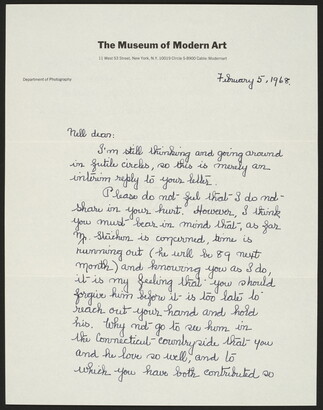 The Museum of Modern Art
11 West 53 Street, New York, N.Y. 10019 Circle 5-8900 Cable: Modernart
Department of Photography
February 5, 1968.
Nell dear:
I'm still thinking and going around
in futile circles, so this is merely an
interim reply to your letter.
Please do not feel that I do not
share in your hurt. However, I think
you must bear in mind that, as far
Mr. Steichen is concerned, time is
running out (he will be 89 next
month) and knowing you as I do,
it is my feeling that you should
forgive him before it is too late to
reach out your hand and hold
his. Why not go to see him in
the Connecticut countryside that you
and he love so well, and to
which you have both contributed so